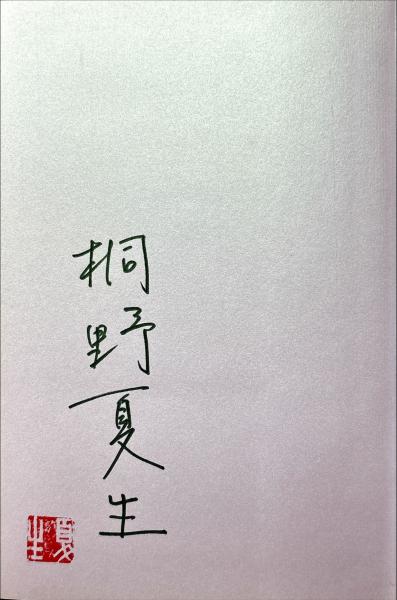 桐野夏生
夏生